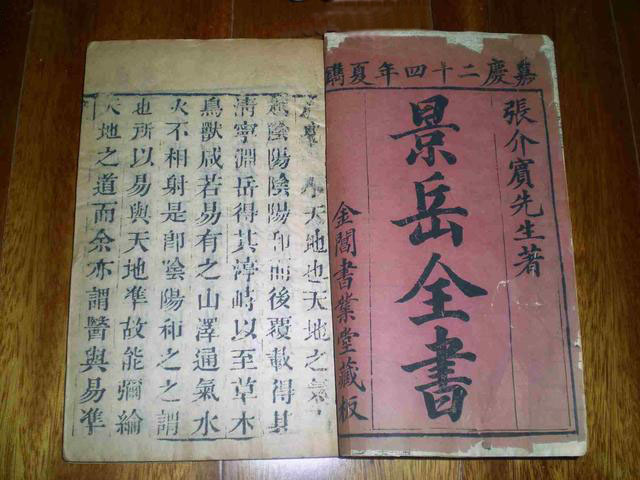 嘉慶二十四年夏鐫
張介賓先生著
景岳全書
金閶書業堂藏板
小天地也天地之氣
陰陽陰陽和而後覆載得其
清寧淵岳得其渟峙以至草木
鳥獸咸若易有之山澤通氣水
火不相射是即陰陽和之之謂
也所以易與天地準故能彌綸
天地之道而余亦謂醫與易準